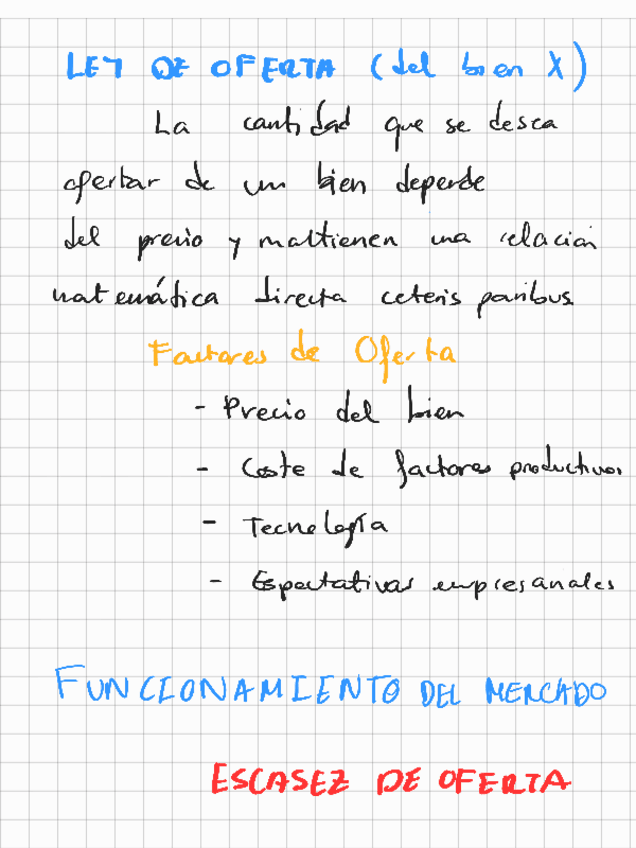 LEY DE OFERTA (del bien X)
La cantidad que se desea
ofertar de un bien depende
del precio y mattienen una relación
matemática directa ceteris paribus
Factores de Oferta
- Precio del bien
- Coste de factores productivos
- Tecnología
- Espectativas empresariales
FUNCIONAMIENTO DEL MERCADO
ESCASEZ DE OFERTA